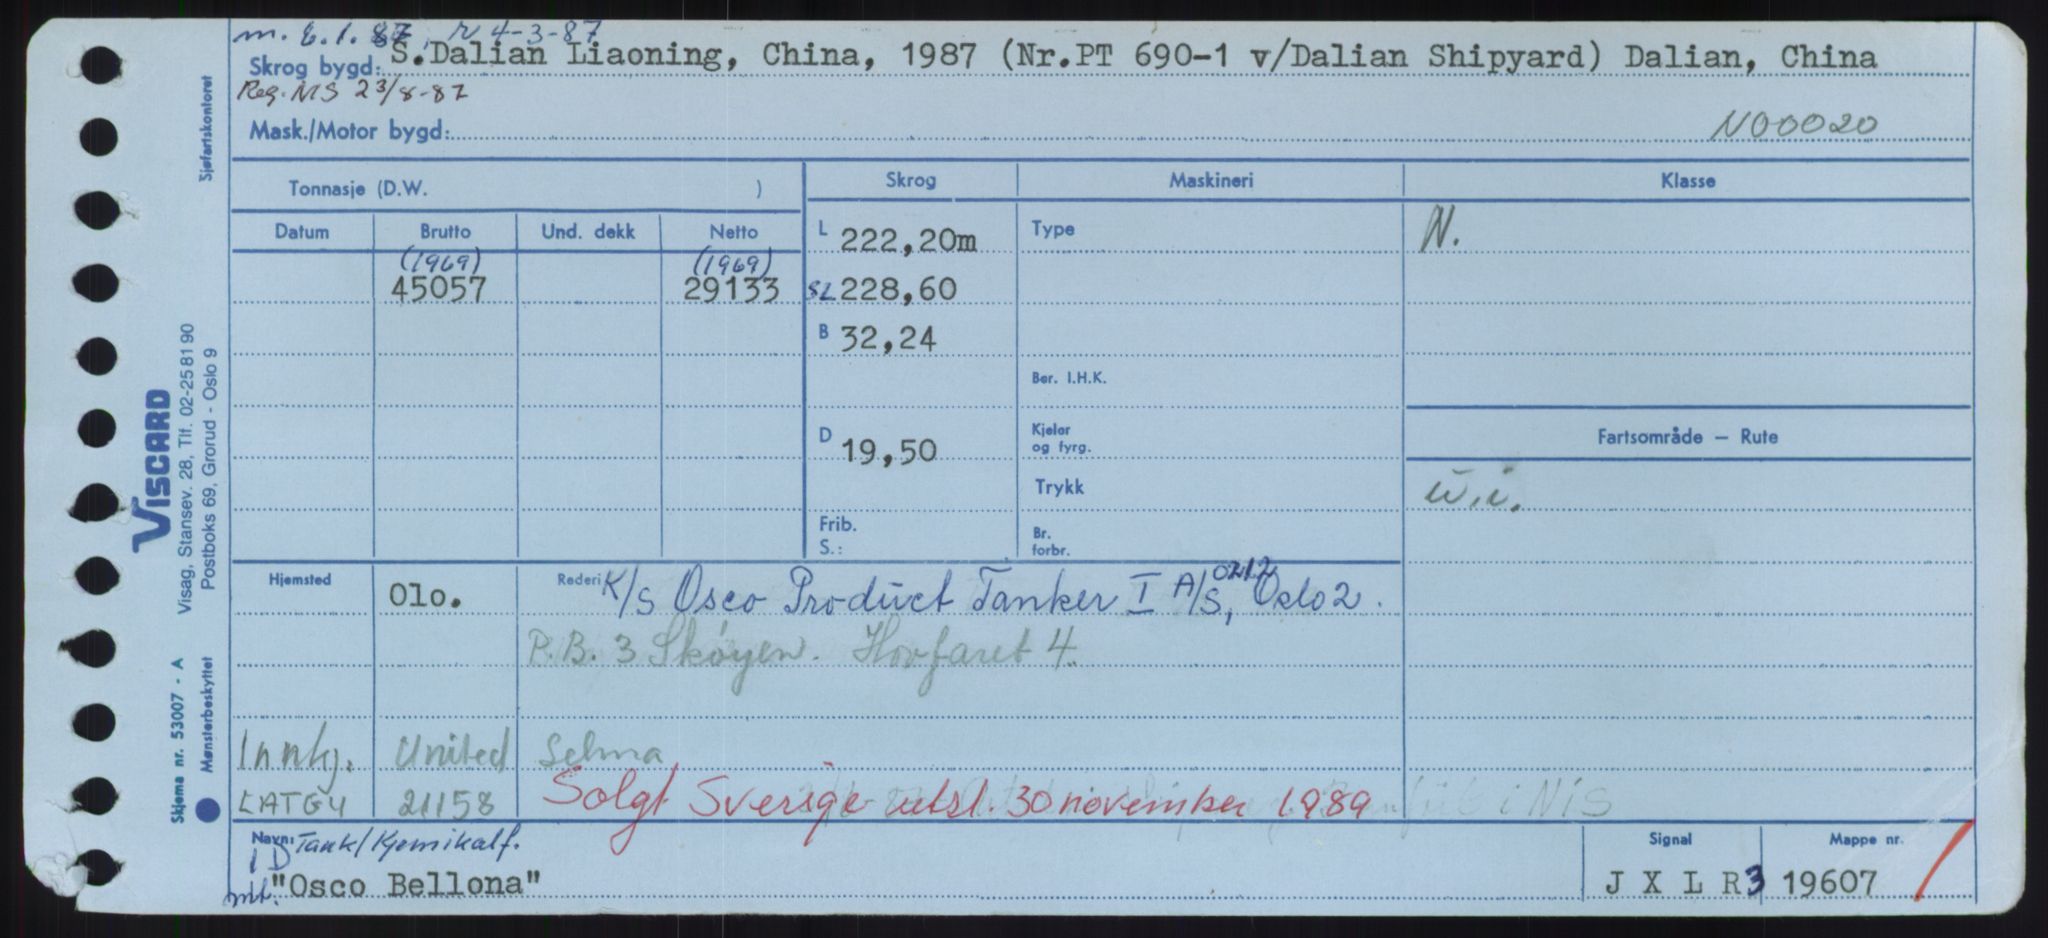 m. 6.1.87, r 4-3-87
Skrog bygd: S.Dalian Liaoning, China, 1987 (Nr.PT 690-1 v/Dalian Shipyard) Dalian, China
Reg. NIS 23/8-87
Mask./Motor bygd: N00020
Sjøfartskontoret
Tonnasje (D.W. )
Skrog
Maskineri
Klasse
Datum
Brutto
Und. dekk
Netto
L 222,20m
Type
N.
(1969)
(1969)
45057
29133
SL 228,60
B 32,24
Ber. I.H.K.
D 19,50
Kjeler
og fyrg.
Fartsområde — Rute
Trykk
u.i.
Frib.
S.:
Br.
forbr.
Hjemsted
Olo.
Rederi K/S Osco Product Tanker I A/S, 0212 Oslo 2.
P.B. 3 Skøyen. Hovfaret 4.
Innkj. United Selma
LATG4 21158 Solgt Sverige utsl. 30 november 1989
i NIS
Navn: Tank/Kjemikalf.
1 D
mt. "Osco Bellona"
Signal
J X L R 3
Mappe nr.
19607
VISCARD
Visag, Stansev. 28, Tlf. 02-25 81 90
Postboks 69, Grorud - Oslo 9
Skjema nr. 53007 - A
Mønsterbeskyttet